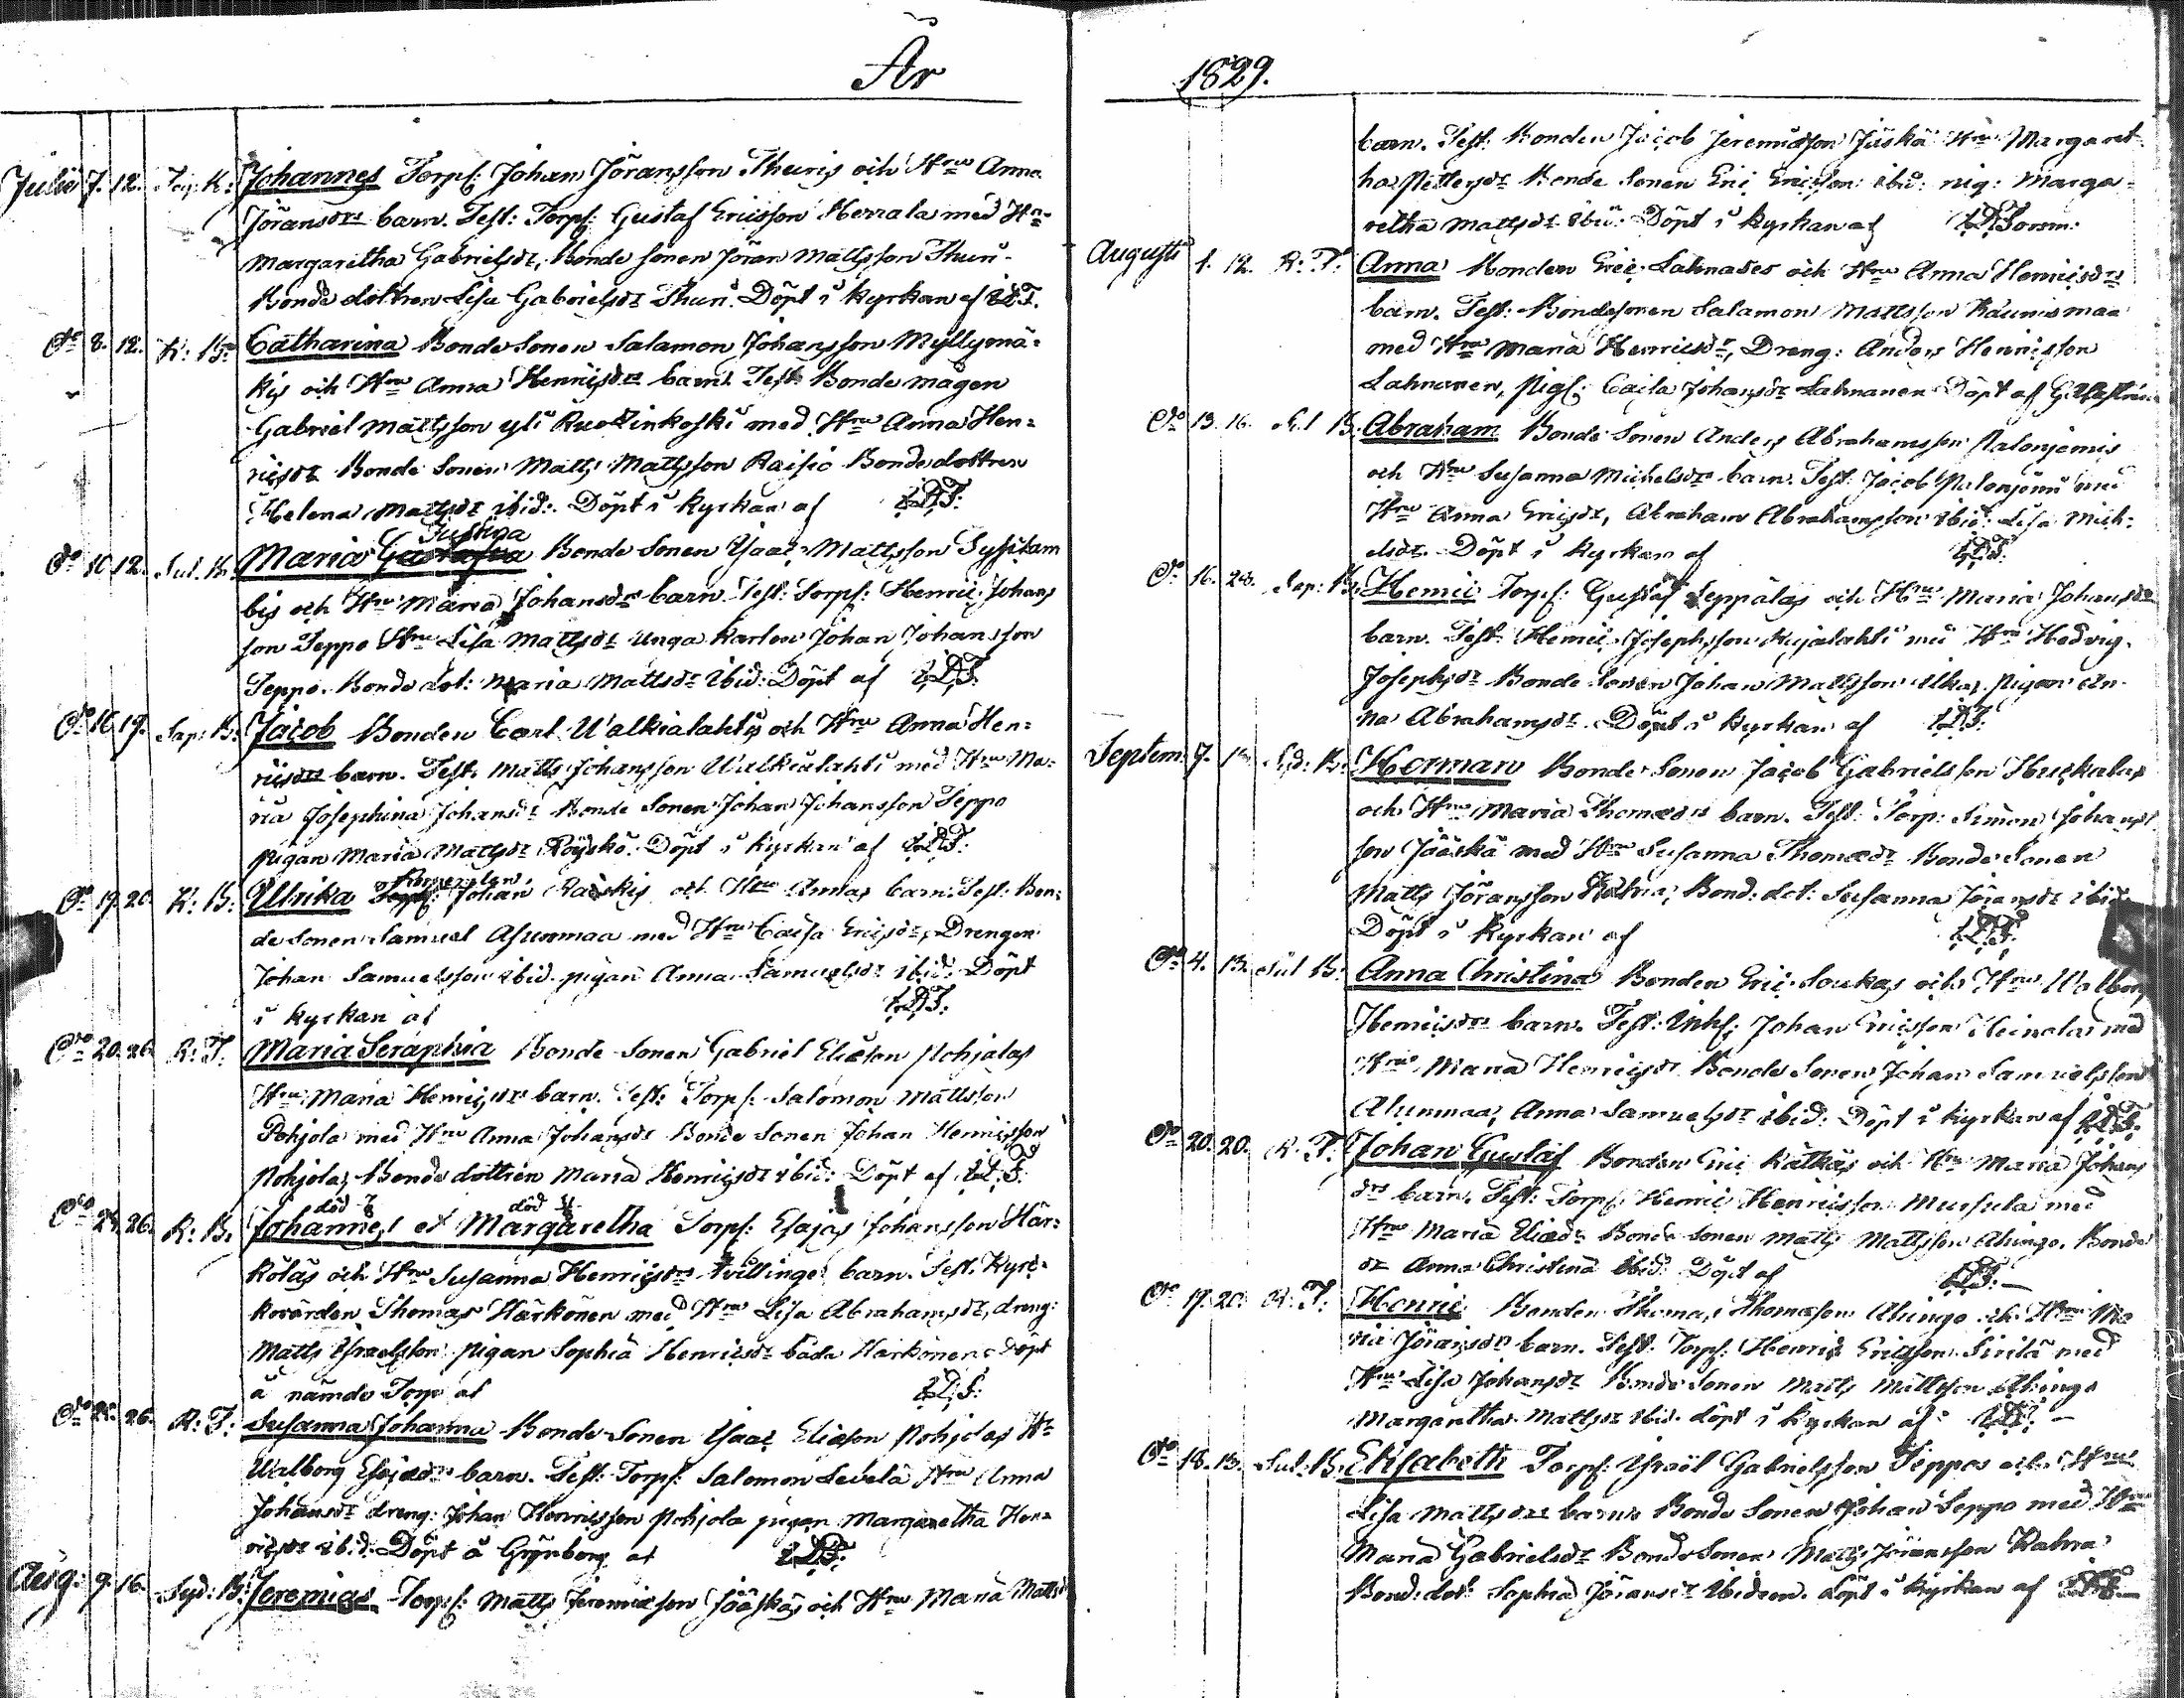 År
Julii 7. 12. Johannes Torp: Johan Jöransson Thuris och Hru Anna
Jöransdrs barn. Test: Torp: Gustaf Ericsson Herrala med H
Margaretha Gabrielsdr, Bonde sonen Jöran Mattsson Thuri
Bonde dottren Lisa Gabrielsdr Thuri. Döpt i kyrkan af
do 8. 12. K: B: Catharina Bonde Sonen Salamon Johansson Myllymä-
kis och Hru Anna Henricsdrs barn. Test: Bonde mågen
Gabriel Mattsson yli Ruotinkoski med Hru Anna Hen-
ricsdr Bonde Sonen Matts Mattsson Raisio Bonde dottren
Helena Mattsdr ibid: Döpt i kyrkan af
Justina
do 10. 12. Sul. B: Maria Bonde Sonen Isaac Mattsson
bis och Hru Maria Johansdrs barn. Test: Torp: Henric Johans
son Seppo Hru Lisa Mattsdr unga karlen Johan Johansson
Seppo. Bonde dot: Maria Mattsdr ibid: Döpt af
do 16 19. Sap: B: Jacob Bonden Carl Walkialahtis och Hru Anna Hen-
ricsdrs barn. Test: Matts Johansson Walkialahti med Hru Ma-
ria Josephina Johansdr Bonde Sonen Johan Johansson Seppo
pigan Maria Mattsdr Röyskö. Döpt i kyrkan af
do 19. 20. K: B: Ulrika Johan och Hru Annas barn. Test: Bon-
de sonen Samuel Asunmaa med Hru Caisa Ericsdr, Drengen
Johan Samuelsson ibid. pigan Anna Samuelsdr ibid: Döpt
i kyrkan af
do 20. 26. R: T: Maria Seraphia Bonde Sonen Gabriel Eliæson Pohjolas
Hru Maria Henricsdrs barn. Test: Torp: Salomon Mattsson
Pohjola med Hru Anna Johansdr Bonde Sonen Johan Henricsson
Pohjola, Bonde dottren Maria Henricsdr ibid: Döpt af
död död
do 24. 26. R: B. Johannes et Margaretha Torp: Esajas Johansson Här-
kölas och Hru Susanna Henricsdrs tvillinge barn. Test. Kyrc-
kovärden Thomas Härkönen med Hru Lisa Abrahamsdr, dreng:
Matts Israelsson pigan Sophia Henricsdr båda Härkönen, döpt
å nämde Torp af
do 25. 26. R: T: Susanna Johanna Bonde Sonen Isaac Eliæson Pohjolas H
Walborg Esajædrs barn. Test: Torp: Salomon Levelä Hru Anna
Johansdr dreng: Johan Henricsson Pohjola pigan Margaretha Hen-
ricsdr ibid: Döpt å Grönborg af
Aug: 9. 16. Syd: B: Jeremias Torp: Matts Jeremiæson Jääskäs och Hru Maria Mattsd
1829.
barn. Test. Bonden Jacob Jeremiæson Jäskä Hru Margaret-
ha Pettersdr Bonde Sonen Eric Ericsson ibid: pig: Marga-
retha Mattsdr ibid: Döpt i kyrkan af
Augusti 1. 12. R: T: Anna Bonden Eric Lahnases och Hru Anna Henricsdrs
barn. Test: Bondesonen Salamon Mattsson Kaunismaa
med Hru Maria Henricsdr, Dreng: Anders Henricsson
Lahnanen, Pig: Caisa Johansdr Lahnanen Döpt af
do 13. 16. Sul B. Abraham Bonde Sonen Anders Abrahamsson Palonjemis
och Hru Susanna Michelsdrs barn. Test: Jacob Palonjemi med
Hru Anna Ericsdr, Abraham Abrahamsson ibid: Lisa Mich-
elsdr. Döpt i kyrkan af
do 16. Sap: B: Henric Torp: Gustaf Seppälas och Hru Maria Johansdr
barn. Test: Henric Josephsson Kujalahti med Hru Hedvig
Josephsdr Bonde Sonen Johan Mattsson pigan An-
na Abrahamsdr. Döpt i kyrkan af
Septem. 7. Syd: B: Herman Bonde Sonen Jacob Gabrielsson
och Hru Maria Thomædrs barn. Test: Torp: Simon Johans
son Jääskä med Hru Susanna Thomædr Bonde Sonen
Matts Jöransson Kahra, Bond: dot: Susanna Jöransdr ibid
Döpt i kyrkan af
do 4. 13. Sul B: Anna Christina Bonden Eric Soukas och Hru Walborg
Henricsdrs barn. Test: Inhs: Johan Ericsson Heinola med
Hru Maria Henricsdr Bonde Sonen Johan Samuelsson
Asunmaa, Anna Samuelsdr ibid: Döpt i kyrkan af
do 20. 20. R. T. Johan Gustaf Bonden Eric Rätkäs och Hru Maria Johans
drs barn. Test: Torp: Henric Henricsson med
Hru Maria Eliædr Bonde Sonen Matts Mattsson Ahingo. Bonde
dr Anna Christina ibid: Döpt af
do 17. 20. R. T: Henric Bonden Thomas Thomæson Ahingo och Hru Ma
ria Jöransdrs barn. Test. Torp: Henric Ericsson Sirilä med
Hru Lisa Johansdr Bonde Sonen Matts Mattsson Ahingo
Margaretha Mattsdr ibid. döpt i kyrkan af
do 18. 13. Sul: B. Elisabeth Torp: Israël Gabrielsson Seppos och Hru
Lisa Mattsdrs barn Bonde Sonen Johan Seppo med Hru
Maria Gabrielsdr Bonde Sonen Matts Jöransson Kahra
Bond: dot: Sophia Jöransdr ibidem. döpt i kyrkan af